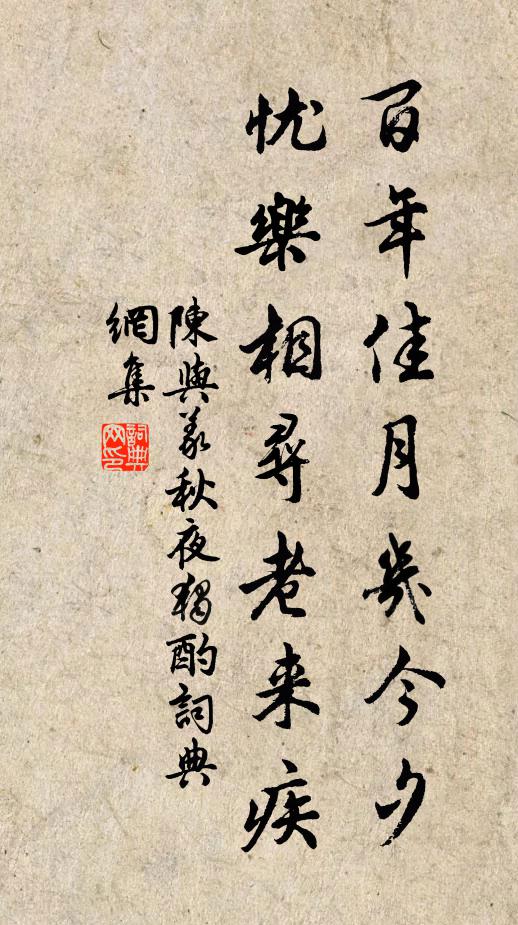 百年佳月幾今夕
忧樂相尋老来疾
陳與義秋夜獨酌詞典
網集
詞典
网印